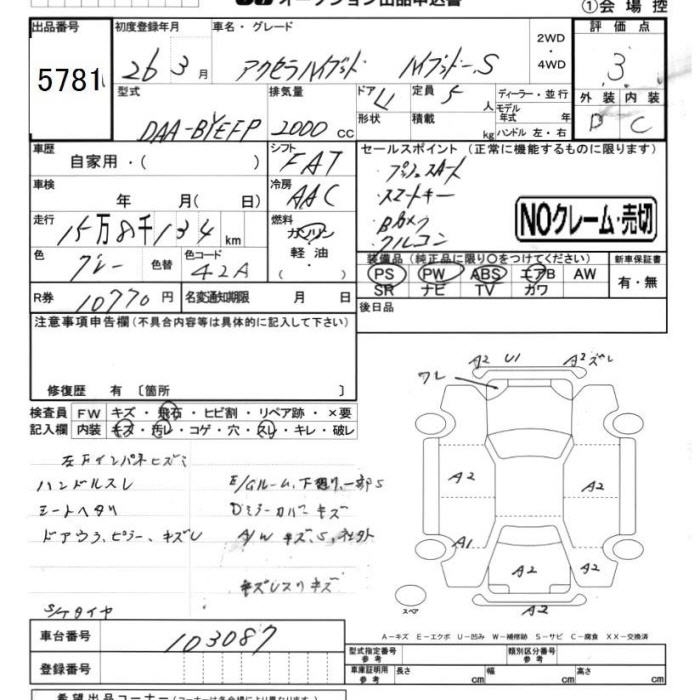 オークション出品申込書
①会場控
出品番号 初度登録年月 車名・グレード 2WD ・ 4WD 評価点
5781 26 3月 アクセラハイブリッド ハイブリッド-S 3
型式 排気量 ドア 4 定員 5人 ディーラー・並行 外装 内装
形状 積載 kg モデル年式 年 ハンドル 左・右
DAA-BYEFP 2000 cc D C
車歴 自家用・( ) シフト FAT セールスポイント (正常に機能するものに限ります)
・プッシュスタート
・スマートキー
・Bカメラ
・クルコン
NOクレーム・売切
車検 年 月( 日) 冷房 AAC
走行 15万8千134 km 燃料 ガソリン 軽油 ・
色 グレー 色替 色コード 42A
装備品 (純正品に限り○をつけてください) 新車保証書
PS PW ABS エアB AW 有・無
SR ナビ TV カワ
R券 10770円 名変通知期限 月 日
後日品
注意事項申告欄(不具合内容等は具体的に記入して下さい)
修復歴 有 〔箇所 〕
検査員 FW キズ・飛石・ヒビ割・リペア跡・×要
記入欄 内装 キズ・汚レ・コゲ・穴・スレ・キレ・破レ
A2 U1 A2 ズレ
ワレ
A2 A2
A1 A2
A2
A2
スペア
左下インパネヒズミ
ハンドルスレ E/Gルーム、下廻り一部S
シートヘタリ Dミラーカバーキズ
ドアウラ、ピラー、キズU A/W キズ、S、社外
S/Tタイヤ
A-キズ E-エクボ U-凹み W-補修跡 S-サビ C-腐食 XX-交換済
車台番号 103087
型式指定番号 参考 類別区分番号 参考
登録番号 車庫証明用 参考 長さ cm 幅 cm 高さ cm
希望出品コーナー